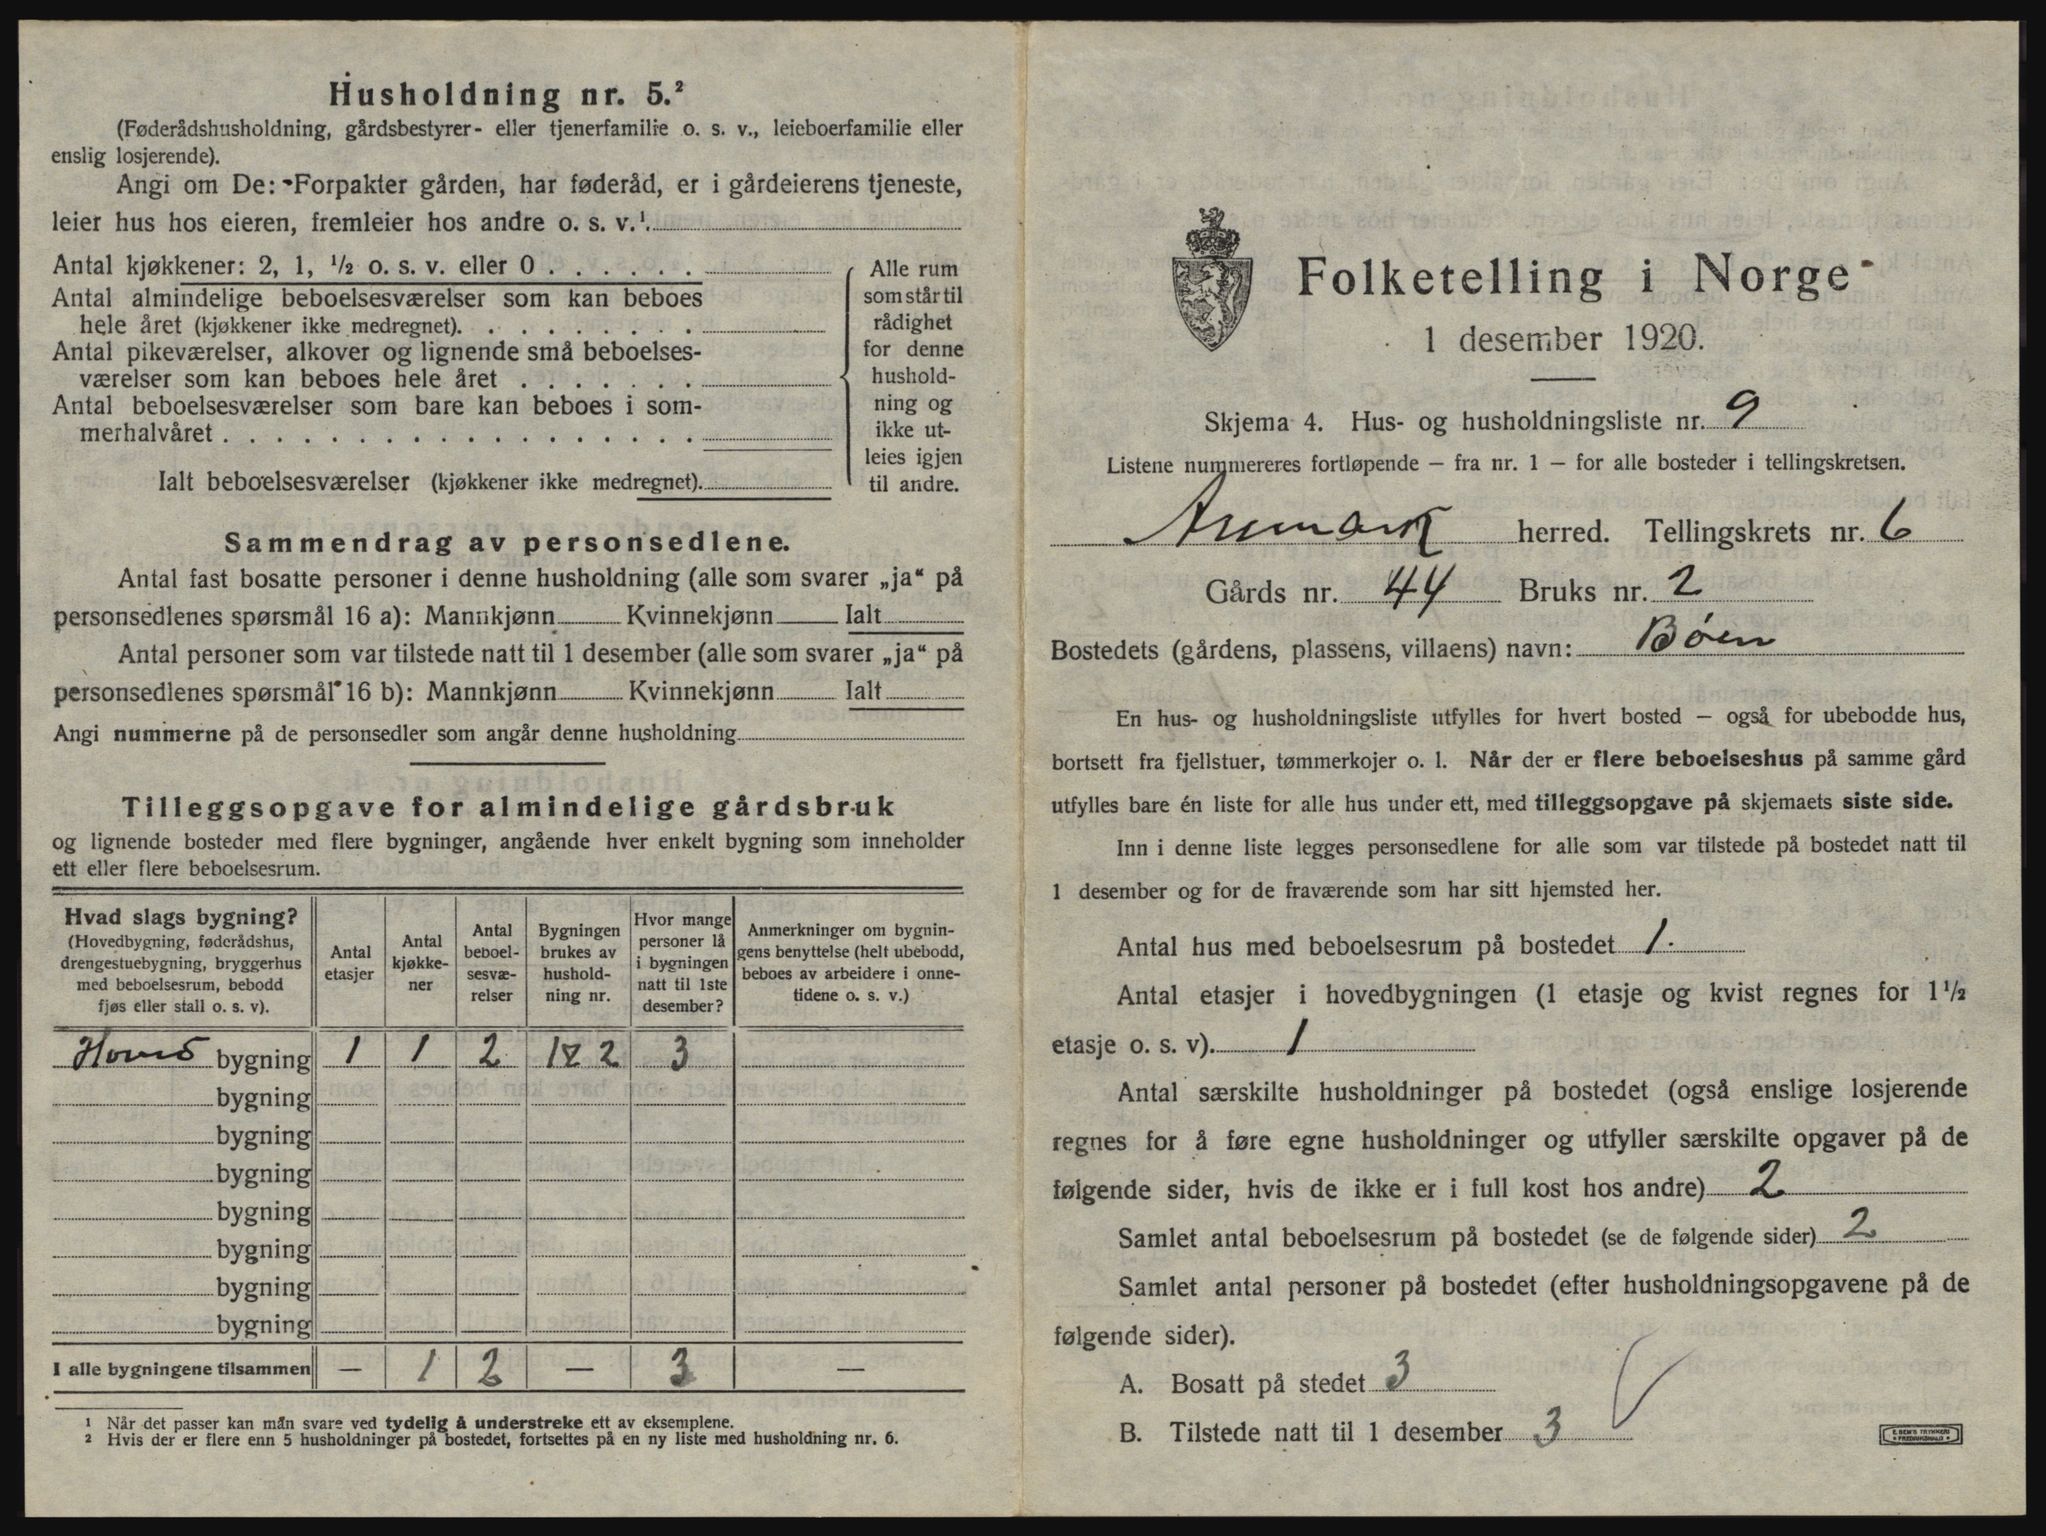 Husholdning nr. 5.²
(Føderådshusholdning, gårdsbestyrer- eller tjenerfamilie o. s. v., leieboerfamilie eller
enslig losjerende).
Angi om De: Forpakter gården, har føderåd, er i gårdeierens tjeneste,
leier hus hos eieren, fremleier hos andre o. s. v.¹
Antal kjøkkener: 2, 1, ½ o. s. v. eller 0 . . . . . .
Antal almindelige beboelsesværelser som kan beboes
hele året (kjøkkener ikke medregnet). . . . . . . . .
Antal pikeværelser, alkover og lignende små beboelses-
værelser som kan beboes hele året . . . . . . .
Antal beboelsesværelser som bare kan beboes i som-
merhalvåret . . . . . . . . . . . . . . . . . .
Ialt beboelsesværelser (kjøkkener ikke medregnet).
Alle rum
som står til
rådighet
for denne
hushold-
ning og
ikke ut-
leies igjen
til andre.
Sammendrag av personsedlene.
Antal fast bosatte personer i denne husholdning (alle som svarer „ja“ på
personsedlenes spørsmål 16 a): Mannkjønn Kvinnekjønn Ialt
Antal personer som var tilstede natt til 1 desember (alle som svarer „ja“ på
personsedlenes spørsmål 16 b): Mannkjønn Kvinnekjønn Ialt
Angi nummerne på de personsedler som angår denne husholdning
Tilleggsopgave for almindelige gårdsbruk
og lignende bosteder med flere bygninger, angående hver enkelt bygning som inneholder
ett eller flere beboelsesrum.
Hvad slags bygning?
(Hovedbygning, føderådshus,
drengestuebygning, bryggerhus
med beboelsesrum, bebodd
fjøs eller stall o. s. v).
Antal
etasjer
Antal
kjøkke-
ner
Antal
beboel-
sesvæ-
relser
Bygningen
brukes av
hushold-
ning nr.
Hvor mange
personer lå
i bygningen
natt til 1ste
desember?
Anmerkninger om bygnin-
gens benyttelse (helt ubebodd,
beboes av arbeidere i onne-
tidene o. s. v.)
Hoved bygning 1 1 2 1 & 2 3
bygning
bygning
bygning
bygning
bygning
bygning
bygning
I alle bygningene tilsammen — 1 2 — 3 —
¹ Når det passer kan man svare ved tydelig å understreke ett av eksemplene.
² Hvis der er flere enn 5 husholdninger på bostedet, fortsettes på en ny liste med husholdning nr. 6.
Folketelling i Norge
1 desember 1920.
Skjema 4. Hus- og husholdningsliste nr. 9
Listene nummereres fortløpende – fra nr. 1 – for alle bosteder i tellingskretsen.
Aremark herred. Tellingskrets nr. 6
Gårds nr. 44 Bruks nr. 2
Bostedets (gårdens, plassens, villaens) navn: Bøen
En hus- og husholdningsliste utfylles for hvert bosted – også for ubebodde hus,
bortsett fra fjellstuer, tømmerkojer o. l. Når der er flere beboelseshus på samme gård
utfylles bare én liste for alle hus under ett, med tilleggsopgave på skjemaets siste side.
Inn i denne liste legges personsedlene for alle som var tilstede på bostedet natt til
1 desember og for de fraværende som har sitt hjemsted her.
Antal hus med beboelsesrum på bostedet 1.
Antal etasjer i hovedbygningen (1 etasje og kvist regnes for 1½
etasje o. s. v). 1
Antal særskilte husholdninger på bostedet (også enslige losjerende
regnes for å føre egne husholdninger og utfyller særskilte opgaver på de
følgende sider, hvis de ikke er i full kost hos andre) 2
Samlet antal beboelsesrum på bostedet (se de følgende sider) 2
Samlet antal personer på bostedet (efter husholdningsopgavene på de
følgende sider).
A. Bosatt på stedet 3
B. Tilstede natt til 1 desember 3
E. SEM'S TRYKKERI
FREDRIKSHALD